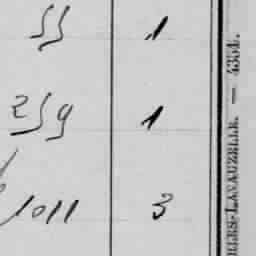 55 1
259 1
1011 3
RLES-LAVAUZELLE. — 4351.